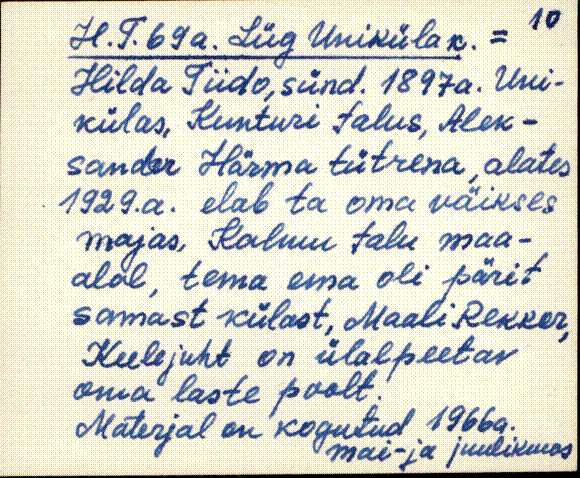 10
H.T. 69 a. Lüg Uniküla k. =
Hilda Tiido, sünd. 1897a. Uni-
külas, Kunturi talus, Alek-
sander Härma tütrena, alates
1929.a. elab ta oma väikses
majas, Kalmu talu maa-
alal, tema ema oli pärit
samast külast, Maali Rekker,
Keelejuht on ülalpeetav
oma laste poolt.
Materjal on kogutud 1966a.
mai- ja juulikuus